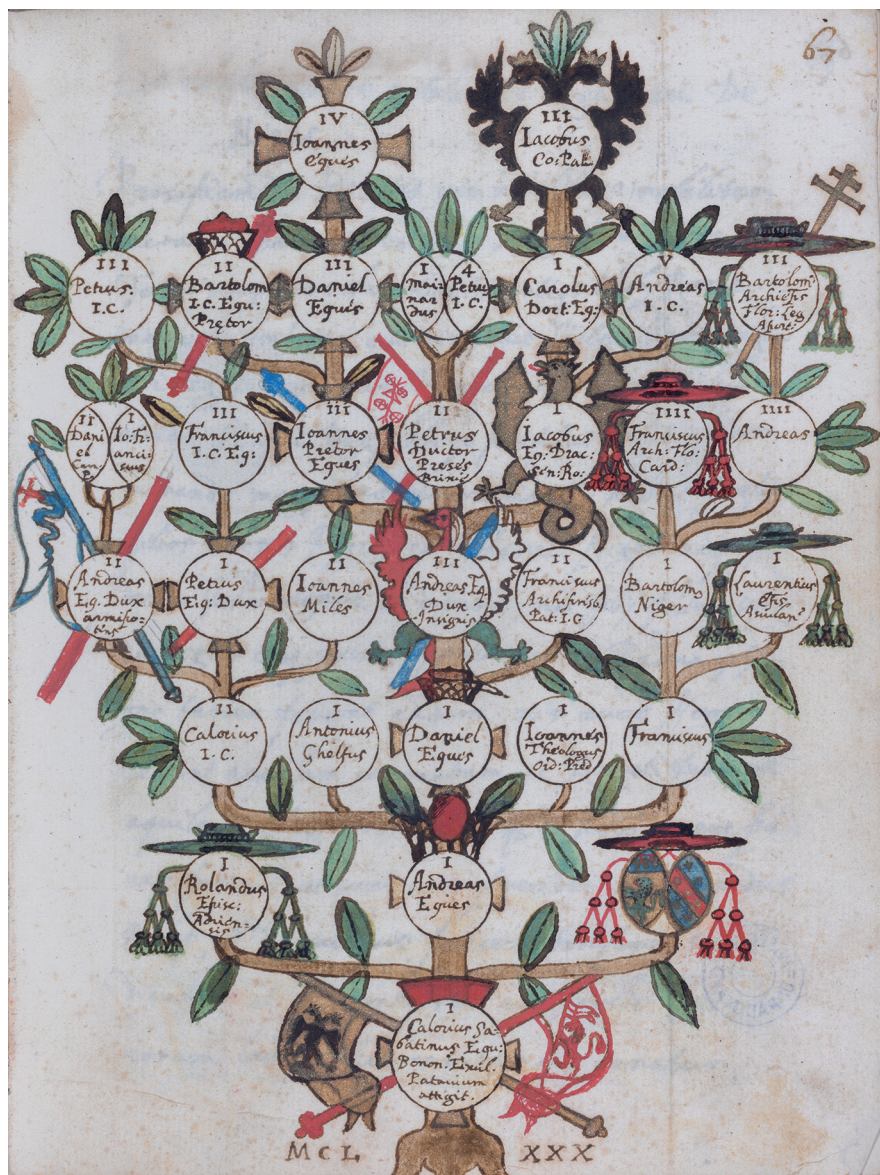 67
IV
Ioannes
Eques
III
Iacobus
Co: Pal.
III
Petrus.
I.C.
II
Bartolom
I.C. Equ:
Pretor
III
Daniel
Eques
I
Mai-
nar
dus
4
Petrus
I.C.
I
Carolus
Dort: Eq:
V
Andreas
I.C.
III
Bartolom
Archieps
Flor: Leg
Apost:
II
Dani
el
I
Io: Fr-
anci-
scus
III
Franciscus
I.C. Eq:
III
Ioannes
Pretor
Eques
II
Petrus
Ductor
Preses
Brixie
I
Iacobus
Eq: Drac:
Sen: Ro:
IIII
Franciscus
Arch: Flo:
Card:
IIII
Andreas
II
Andreas
Eq. Dux
armipo-
tens
I
Petrus
Eq: Dux
II
Ioannes
Miles
III
Andreas Eq.
Dux
Insignis
II
Franciscus
Archipresb.
Pat: I.C
I
Bartolom9
Niger
I
Laurentius
Eps
II
Calorius
I.C.
I
Antonius
Ghelfus
I
Daniel
Eques
I
Ioannes
Theologus
Ord: Pred
I
Franciscus
I
Rolandus
Episc:
Adrien-
sis
I
Andreas
Eques
I
Calorius Sa-
batinus Equ:
Bonon. Exil.
Patavium
attigit.
MCL XXX